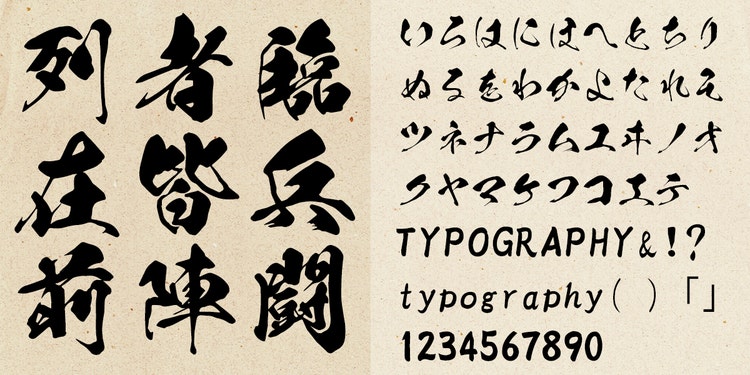 臨兵闘
者皆陣
列在前
いろはにほへとちり
ぬるをわかよたれそ
ツネナラムウヰノオ
クヤマケフコエテ
TYPOGRAPHY&!?
typography( )「」
1234567890